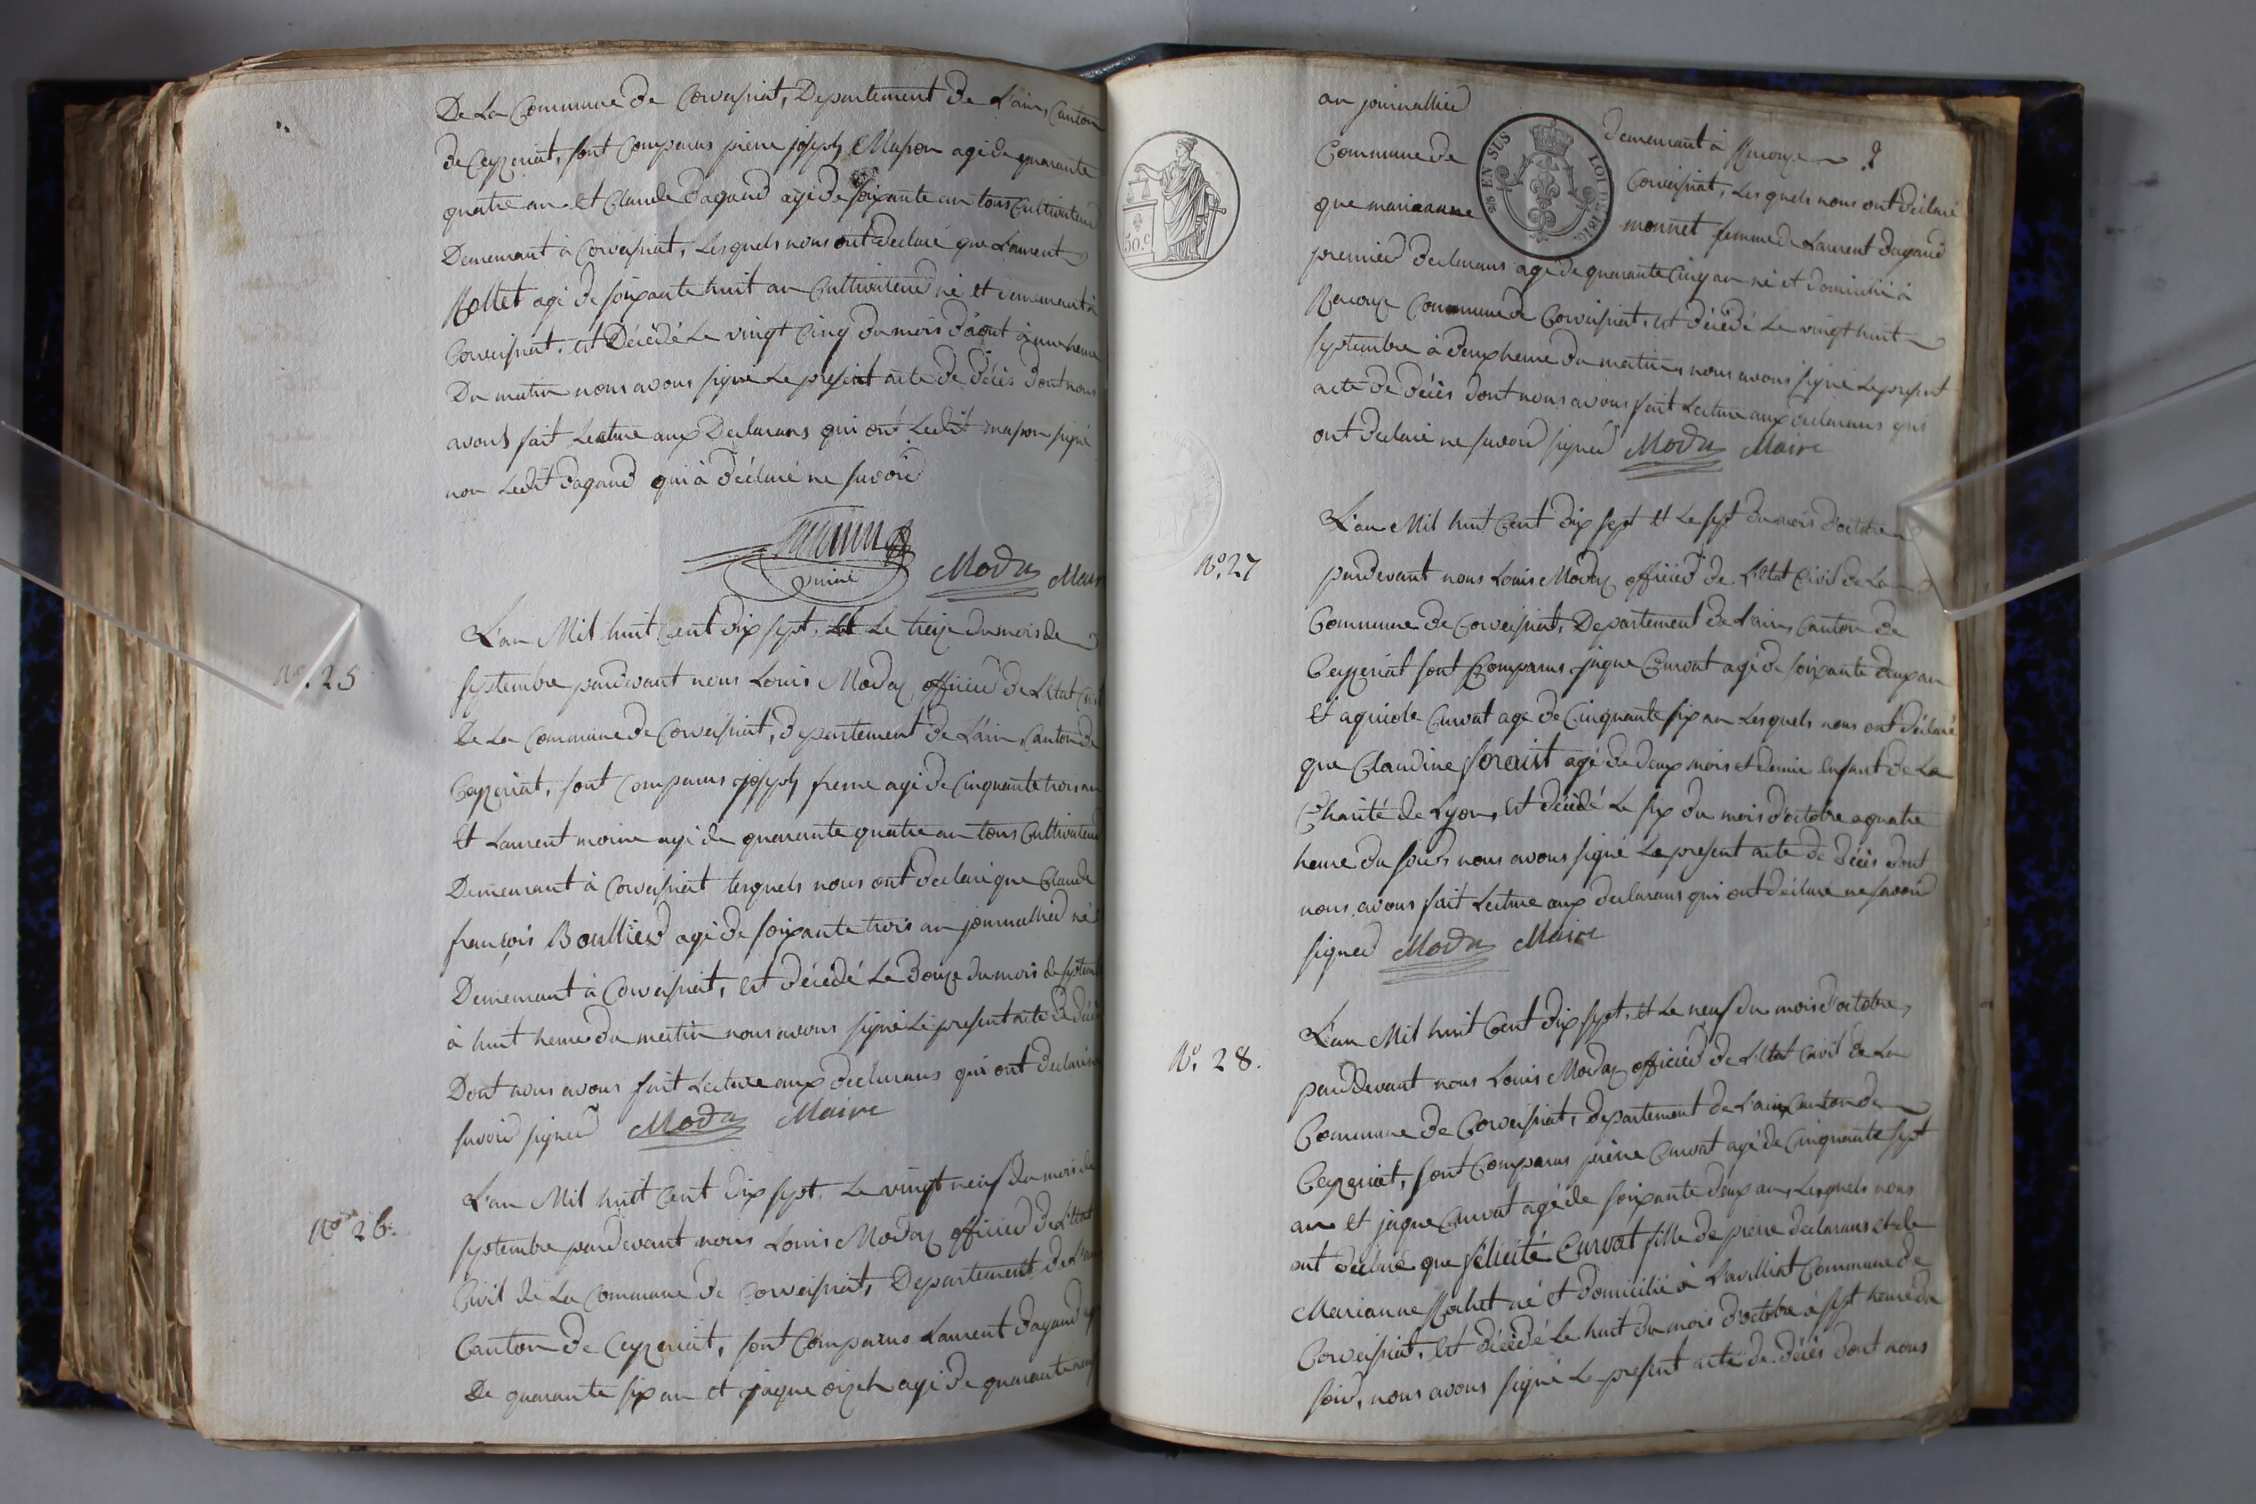 De La Commune de Corveisiat, Departement de L'ain, Canton
de Ceyzeriat, sont Comparus pierre joseph Masson agé de quarante
quatre an et Claude dagaud agé de soixante an tous Cultivateur
Demeurant à Corveisiat, Lesquels nous ont declaré que Laurent
Rollet agé de soixante huit an Cultivateur né et demeurant à
Corveisiat, est Décédé Le vingt Cinq du mois d'aout à une heure
Du matin nous avons signé Le present acte de déces dont nous
avons fait Lecture aux Declarans qui ont Ledit masson signé
non Ledit dagaud qui à déclaré ne savoir
Moda Maire
N°. 25
L'an Mil huit Cent dix sept, et Le treize du mois de
septembre pardevant nous Louis Moda, officier de L'état Civil
De La Commune de Corveisiat, departement de L'ain, Canton de
Ceyzeriat, sont Comparus joseph frene agé de Cinquante trois an
et Laurent moine agé de quarante quatre an tous Cultivateur
Demeurant à Corveisiat lesquels nous ont declaré que Claude
françois Boullier agé de soixante trois an journallier né
Demeurant à Corveisiat, est décédé Le douze du mois de septembre
à huit heure du matin nous avons signé Le present acte de décès
Dont nous avons fait Lecture aux declarans qui ont declaré ne
savoir signer Moda Maire
N° 26.
L'an Mil huit Cent dix sept, Le vingt neuf du mois de
septembre pardevant nous Louis Moda officier de L'état
Civil de La Commune de Corveisiat, Departement de L'ain
Canton de Ceyzeriat, sont Comparus Laurent dagaud agé
De quarante six an et jaque agé de quarante neuf
an journallier demeurant à
Commune de Corveisiat, Les quels nous ont déclaré
que marianne monnet femme de Laurent dagaud
premier declarans agé de quarante Cinq an né et domicilié à
Commune de Corveisiat, est décédé Le vingt huit
septembre à deux heure du matin, nous avons signé Le present
acte de déces dont nous avons fait Lecture aux declarans qui
ont declaré ne savoir signer Moda Maire
26 EN SUS
LOI 1816
50.c
N°. 27
L'an Mil huit Cent dix sept et Le sept du mois d'octobre
pardevant nous Louis Moda, officier de L'état Civil de La
Commune de Corveisiat, Departement de L'ain, Canton de
Ceyzeriat sont Comparus jaque Curvat agé de soixante deux an
et agricole Curvat age de Cinquante six an Lesquels nous ont déclaré
que Claudine agé de deux mois et demie enfant de La
Charité de Lyon, est décédé Le six du mois d'octobre a quatre
heure du soir, nous avons signé Le present acte de décès dont
nous avons fait Lecture aux declarans qui ont déclaré ne savoir
signer Moda Maire
N°. 28.
L'an Mil huit Cent dix sept, et Le neuf du mois d'octobre,
pardevant nous Louis Moda officier de L'état Civil de La
Commune de Corveisiat, departement de L'ain, Canton de
Ceyzeriat, sont Comparus pierre Curvat agé de Cinquante sept
an et jaque Curvat agé de soixante deux an, Lesquels nous
ont déclaré que félicité Curvat fille de pierre declarans et de
Marianne Rochet né et domicilié à Lavilliat Commune de
Corveisiat, est décédé Le huit du mois d'octobre à sept heure du
soir, nous avons signé Le present acte de décès dont nous